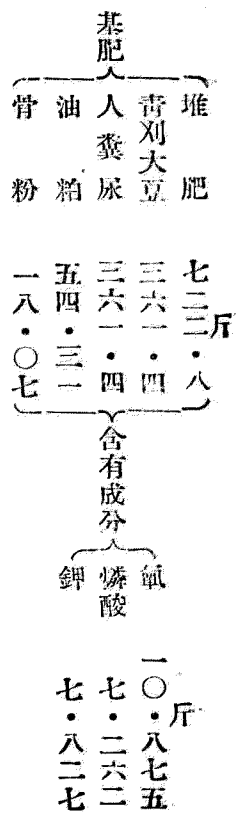 基肥
堆肥 七二二・八斤
青刈大豆 三六一・四
人糞尿 三六一・四
油粕 五四・三一
骨粉 一八・〇七
含有成分
氮 一〇・八七五斤
燐酸 七・二六二
鉀 七・八二七